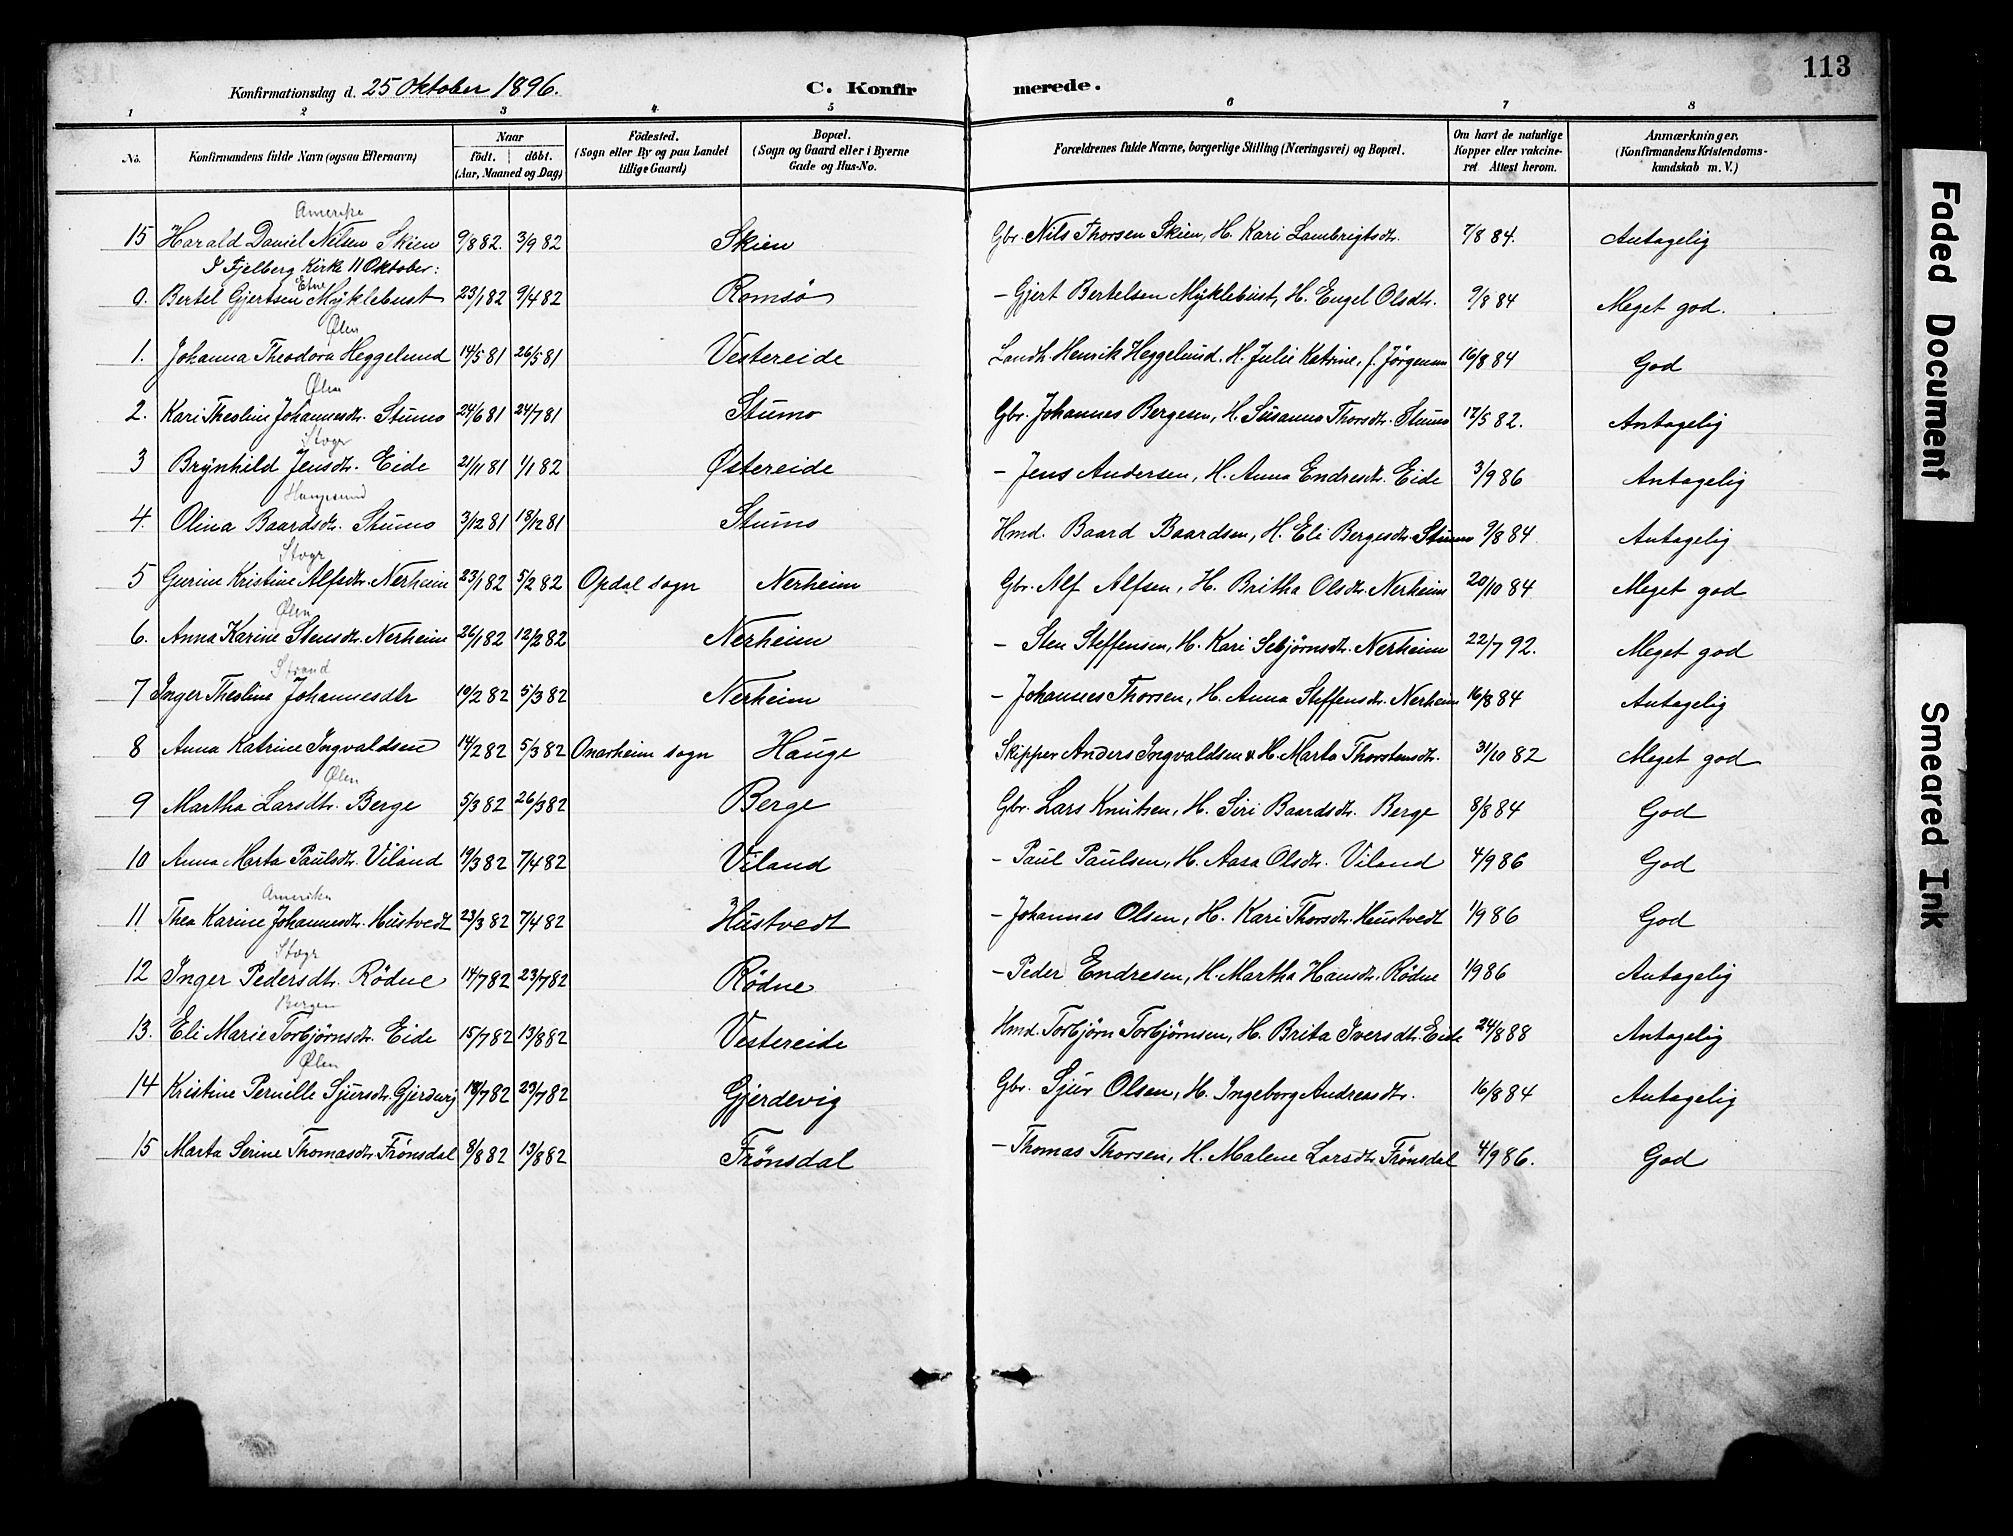 113
Konfirmationsdag d. 25 Oktober 1896. C. Konfir merede.
1 2 3 4 5 6 7 8
No. Konfirmandens fulde Navn (ogsaa Efternavn) Naar födt. döbt. (Aar, Maaned og Dag) Födested. (Sogn eller By og paa Landet tillige Gaard) Bopæl. (Sogn og Gaard eller i Byerne Gade og Hus-No. Forældrenes fulde Navne, borgerlige Stilling (Næringsvei) og Bopæl. Om havt de naturlige Kopper eller vakcineret Attest herom. Anmærkninger. (Konfirmandens Kristendomskundskab m. V.)
Amerika
15 Harald Daniel Nilsen Skien 9/8 82. 3/9 82 Skien Gbr. Nils Thorsen Skien, H. Kari Lambrigtsdtr. 7/8 84. Antagelig
I Fjelberg Kirke 11 Oktober:
Etne
9. Bertel Gjertsen Myklebust 23/1 82 9/4 82 Romsö - Gjert Bertelsen Myklebust, H. Engel Olsdtr. 9/8 84 Meget god.
Ølen
1. Johanna Theodora Heggelund 14/5 81 26/5 81 Vestereide Landh. Henrik Heggelund, H. Julie Katrine, f. Jörgensen 16/8 84 God
Ølen
2. Kari Theoline Johannesdtr. Stumo 24/6 81 24/7 81 Stumo Gbr. Johannes Bergesen, H. Susanna Thorsdtr. Stumo 17/5 82. Antagelig
Stogr
3 Brynhild Jensdtr. Eide 21/11 81 1/1 82 Østereide - Jens Andersen, H. Anna Endresdtr. Eide 3/9 86 Antagelig
Haugesund
4. Olina Baardsdtr. Stumo 3/12 81 18/12 81 Stumo Hmd. Baard Baardsen, H. Eli Bergesdtr. Stumo 9/8 84 Antagelig
Stogr
5 Gurine Kristine Alfsdtr. Nerheim 23/1 82 5/2 82 Opdal sogn Nerheim Gbr. Alf Alfsen, H. Britha Olsdtr. Nerheim 20/10 84 Meget god
Ølen
6. Anna Karine Stensdtr. Nerheim 26/1 82 12/2 82 Nerheim - Sten Steffensen, H. Kari Sebjørnsdtr. Nerheim 22/7 92. Meget god
Strand
7 Inger Theoline Johannesdtr 19/2 82 5/3 82 Nerheim - Johannes Thorsen, H. Anna Steffensdtr. Nerheim 16/8 84 Antagelig
8 Anna Katrine Ingvaldsen 14/2 82 5/3 82 Onarheim sogn Hauge Skipper Anders Ingvaldsen & H. Marta Thorstensdtr. 31/10 82 Meget god
Ølen
9 Martha Larsdtr. Berge 5/3 82 26/3 82 Berge Gbr. Lars Knutsen, H. Siri Baardsdtr. Berge 8/8 84 God
10 Anna Marta Paulsdtr. Viland 19/3 82 7/4 82 Viland - Paul Paulsen, H. Aasa Olsdtr. Viland 4/9 86 God
Amerika
11 Thea Karine Johannesdtr. Hustvedt 23/3 82 7/4 82 Hustvedt - Johannes Olsen, H. Kari Thorsdtr. Hustvedt 1/9 86 God
Stogr
12 Inger Pedersdtr. Rödne 14/7 82 23/7 82 Rödne - Peder Endresen, H. Martha Hansdtr. Rödne 1/9 86 Antagelig
Bergen
13. Eli Marie Torbjørnsdtr. Eide 15/7 82 13/8 82 Vestereide Hmd. Torbjörn Torbjørnsen, H. Brita Iversdtr. Eide 24/8 88 Antagelig
Ølen
14 Kristine Pernille Sjursdtr. Gjerdevig 18/7 82 23/7 82 Gjerdevig Gbr. Sjur Olsen, H. Ingeborg Andreasdtr. 16/8 84 Antagelig
15 Marta Serine Thomasdtr. Frönsdal 8/8 82 13/8 82 Frönsdal - Thomas Thorsen, H. Malene Larsdtr. Frönsdal 4/9 86. God
Faded Document
Smeared Ink